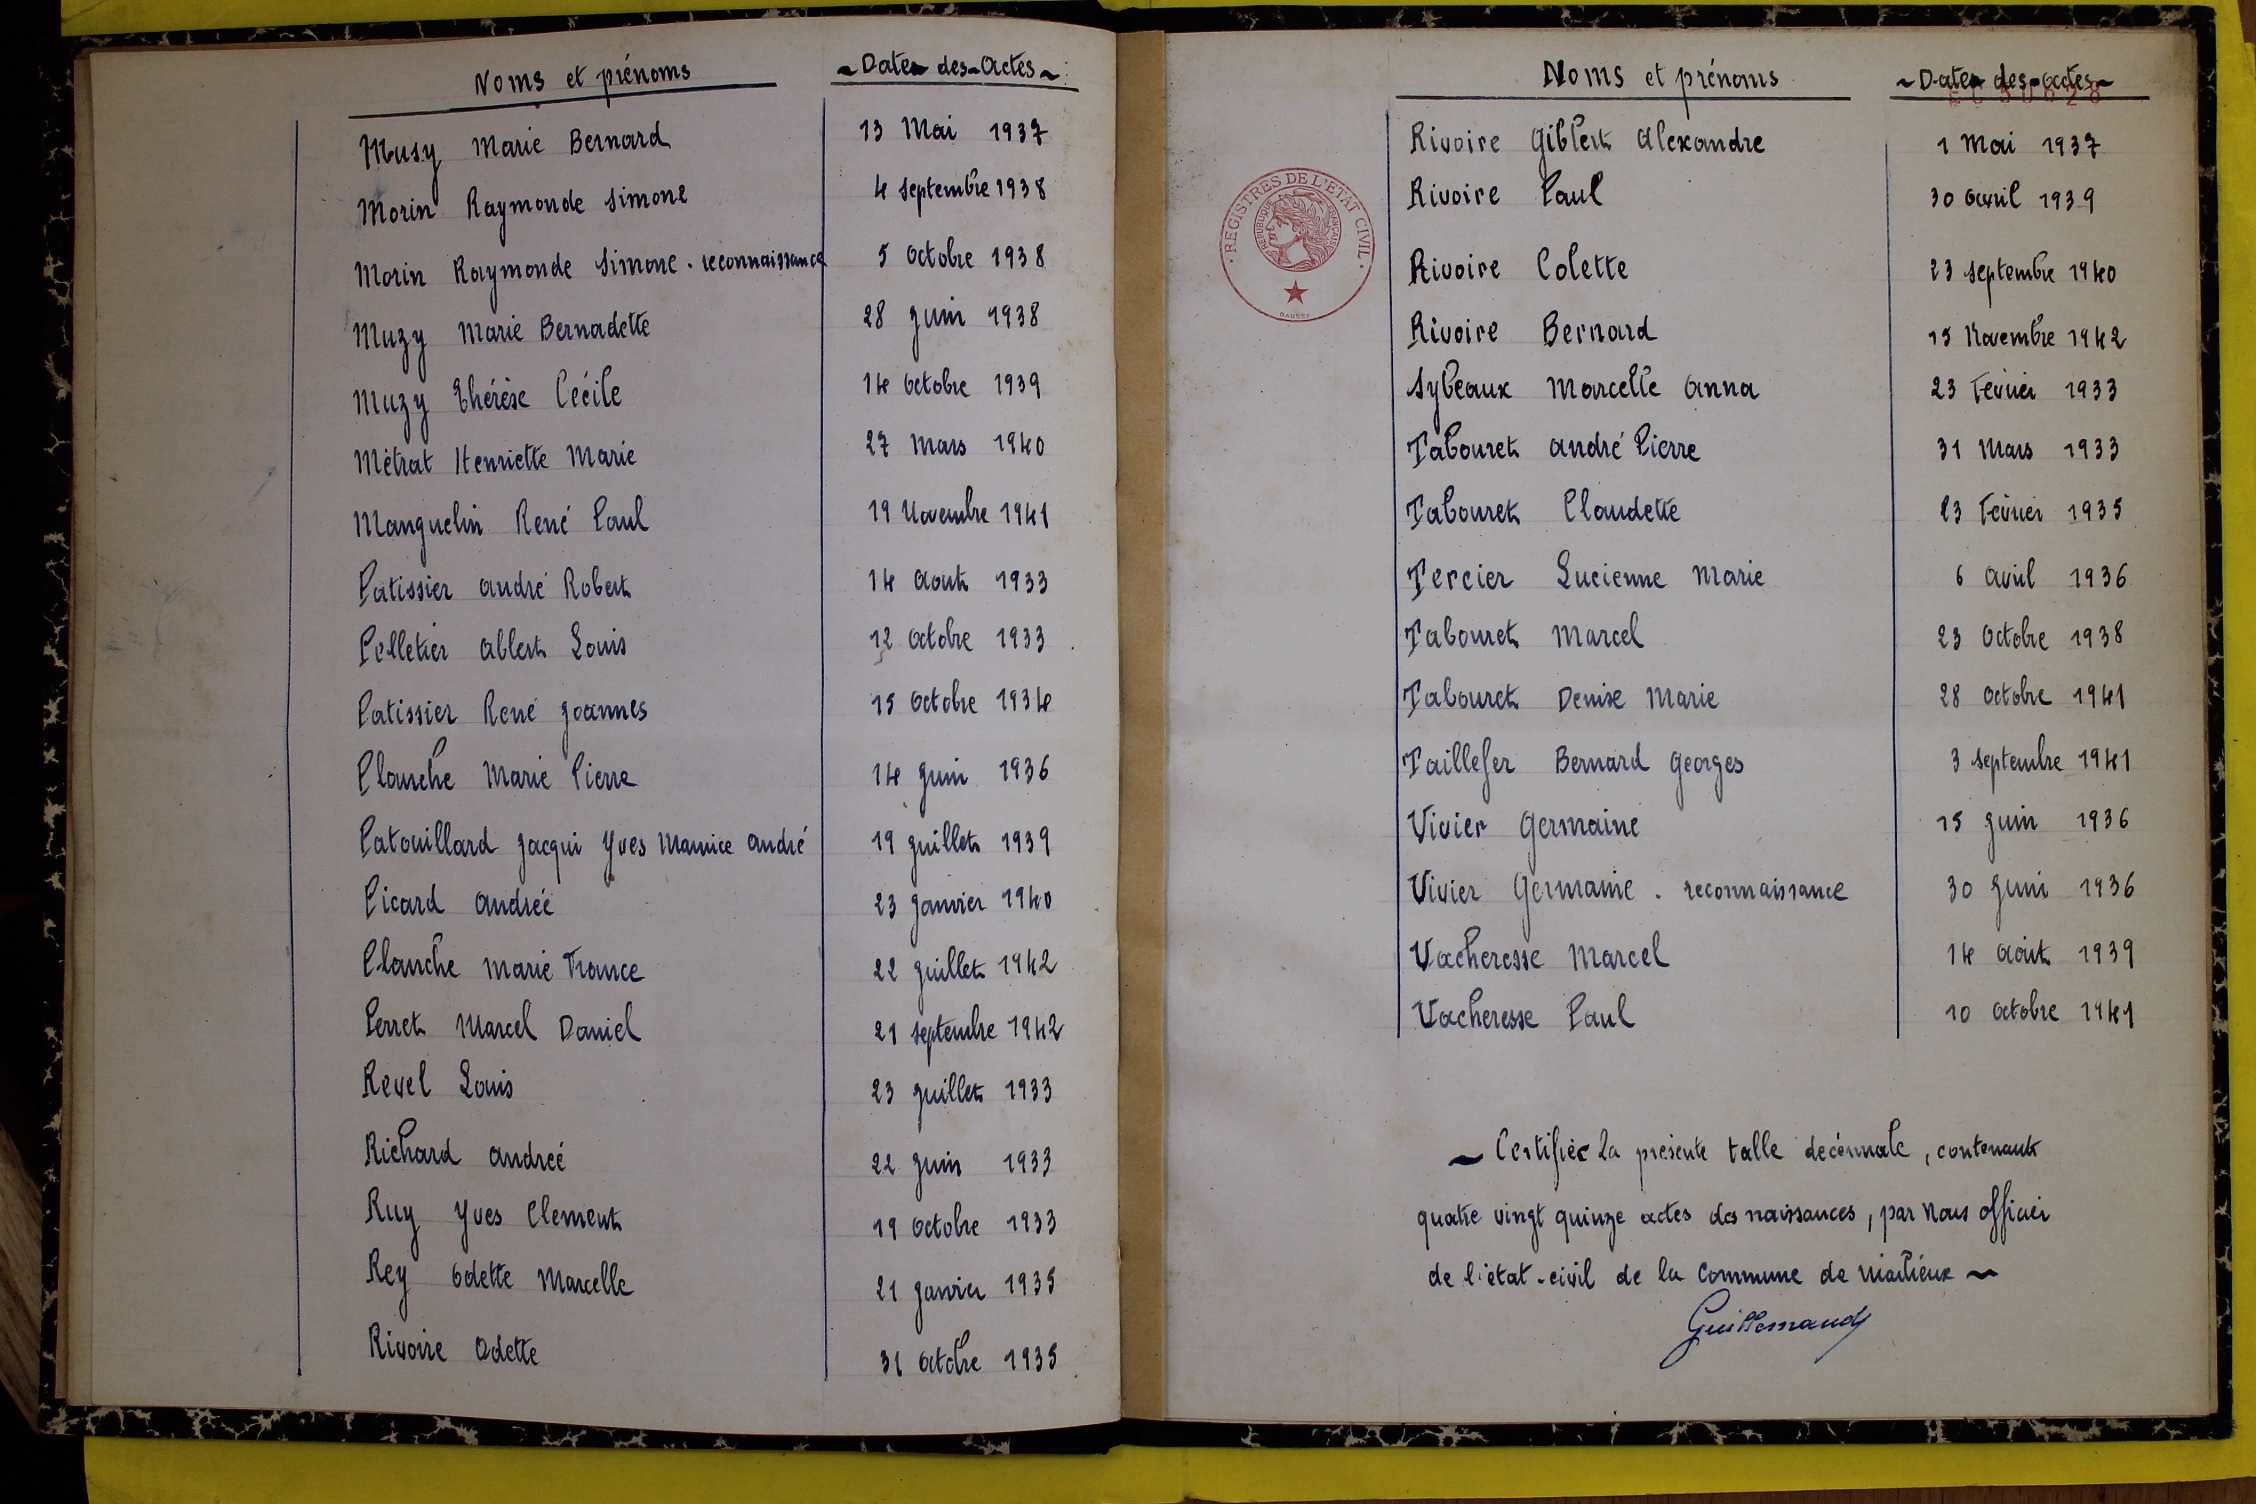 Noms et prénoms ~ Dates des Actes ~
Musy Marie Bernard 13 Mai 1937
Morin Raymonde Simone 4 Septembre 1938
Morin Raymonde Simone - reconnaissance 5 Octobre 1938
Muzy Marie Bernadette 28 Juin 1938
Muzy Thérèse Cécile 14 Octobre 1939
Métrat Henriette Marie 27 Mars 1940
Manguelin René Paul 19 Novembre 1941
Patissier André Robert 14 Aout 1933
Pelletier Albert Louis 12 Octobre 1933
Patissier René Joannes 15 Octobre 1934
Planche Marie Pierre 14 Juin 1936
Patouillard Jacqui Yves Maurice André 19 Juillet 1939
Picard Andrée 23 Janvier 1940
Planche Marie France 22 Juillet 1942
Perret Marcel Daniel 21 Septembre 1942
Revel Louis 23 Juillet 1933
Richard Andreé 22 Juin 1933
Ruy Yves Clement 19 Octobre 1933
Rey Odette Marcelle 21 Janvier 1935
Rivoire Odette 31 Octobre 1935
Noms et prénoms ~ Dates des Actes ~
Rivoire Gilbert Alexandre 1 Mai 1937
Rivoire Paul 30 Avril 1939
REGISTRES DE L'ETAT CIVIL
REPUBLIQUE FRANÇAISE
Rivoire Colette 23 Septembre 1940
Rivoire Bernard 15 Novembre 1942
Sybeaux Marcelle Anna 23 Février 1933
Tabouret André Pierre 31 Mars 1933
Tabouret Claudette 23 Février 1935
Tercier Lucienne Marie 6 Avril 1936
Tabouret Marcel 23 Octobre 1938
Tabouret Denise Marie 28 Octobre 1941
Taillefer Bernard Georges 3 Septembre 1941
Vivier Germaine 15 Juin 1936
Vivier Germaine - reconnaissance 30 Juin 1936
Vacheresse Marcel 14 Août 1939
Vacheresse Paul 10 Octobre 1941
~ Certifiée la présente table décennale, contenant
quatre vingt quinze actes des naissances, par Nous officier
de l'état-civil de la Commune de
Guillemaud